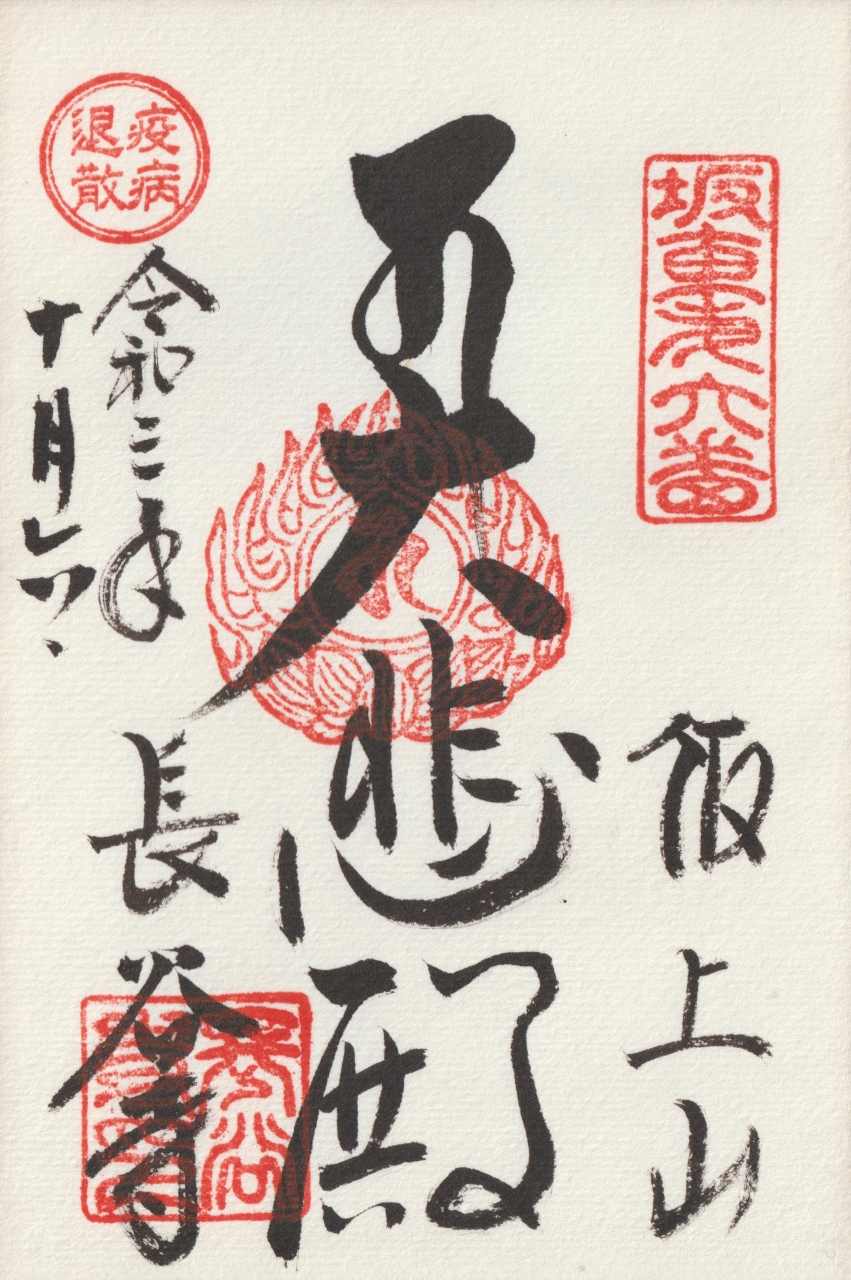 坂東第六番
飯上山
五大悲殿
疫病退散
令和三年
十月六日
長谷寺